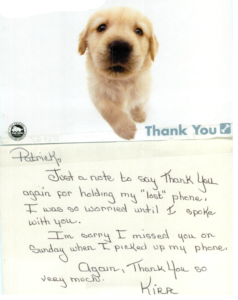 Thank You
Patrick,
Just a note to say Thank You
again for holding my "lost" phone.
I was so worried until I spoke
with you.
I'm sorry I missed you on
Sunday when I picked up my phone.
Again, Thank You so
very much.
Kira